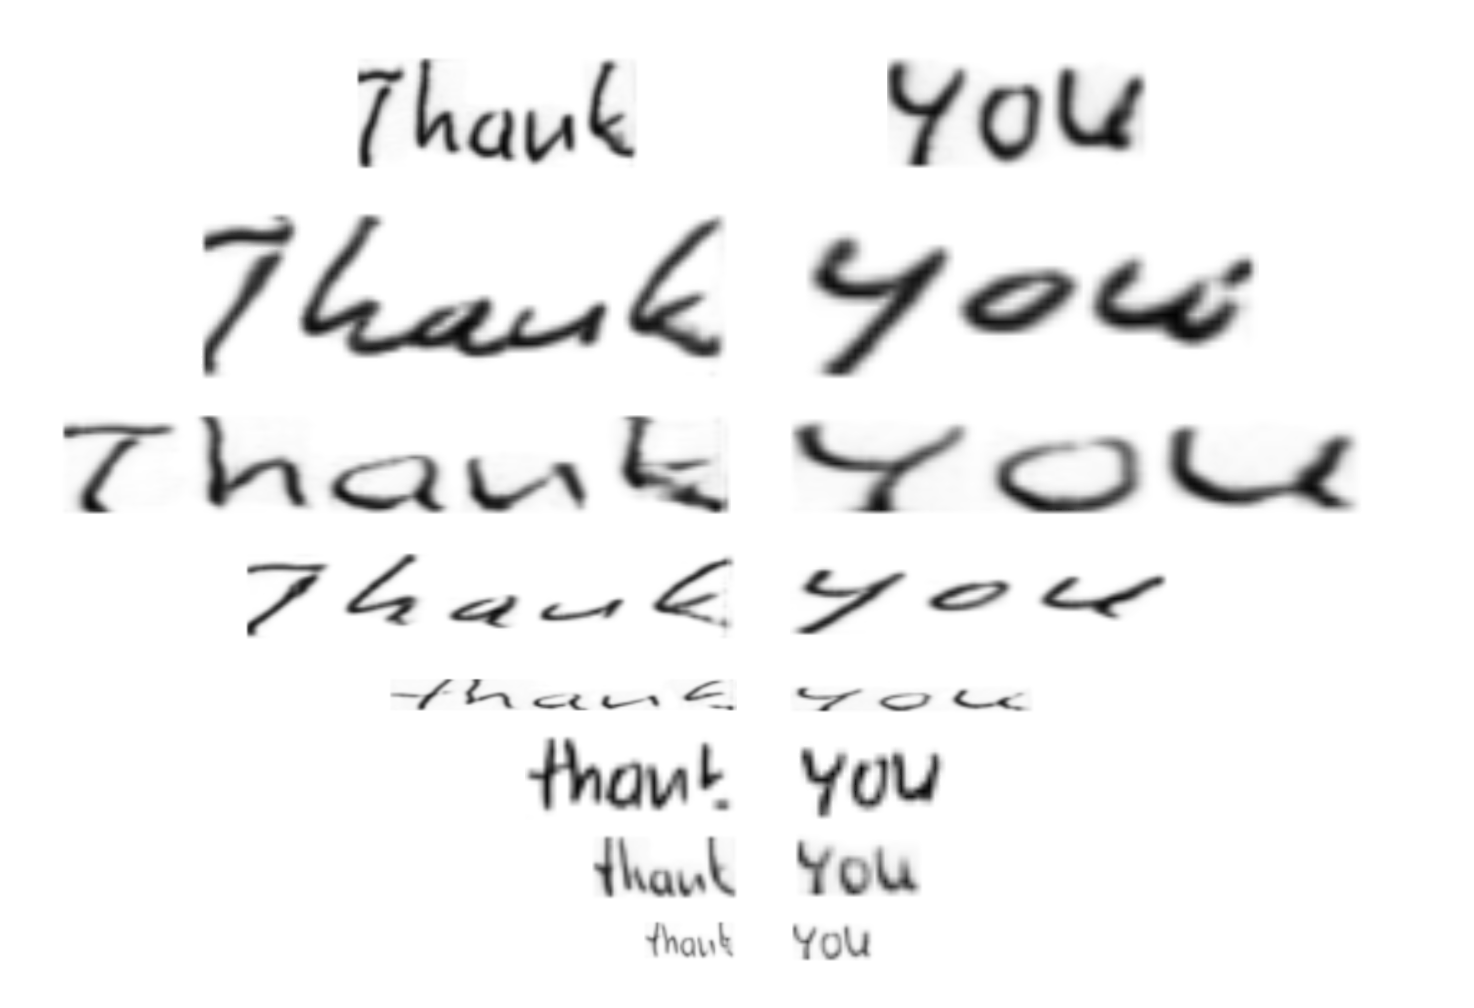 Thank you
Thank you
Thank you
Thank you
thank you
thank you
thank you
thank you